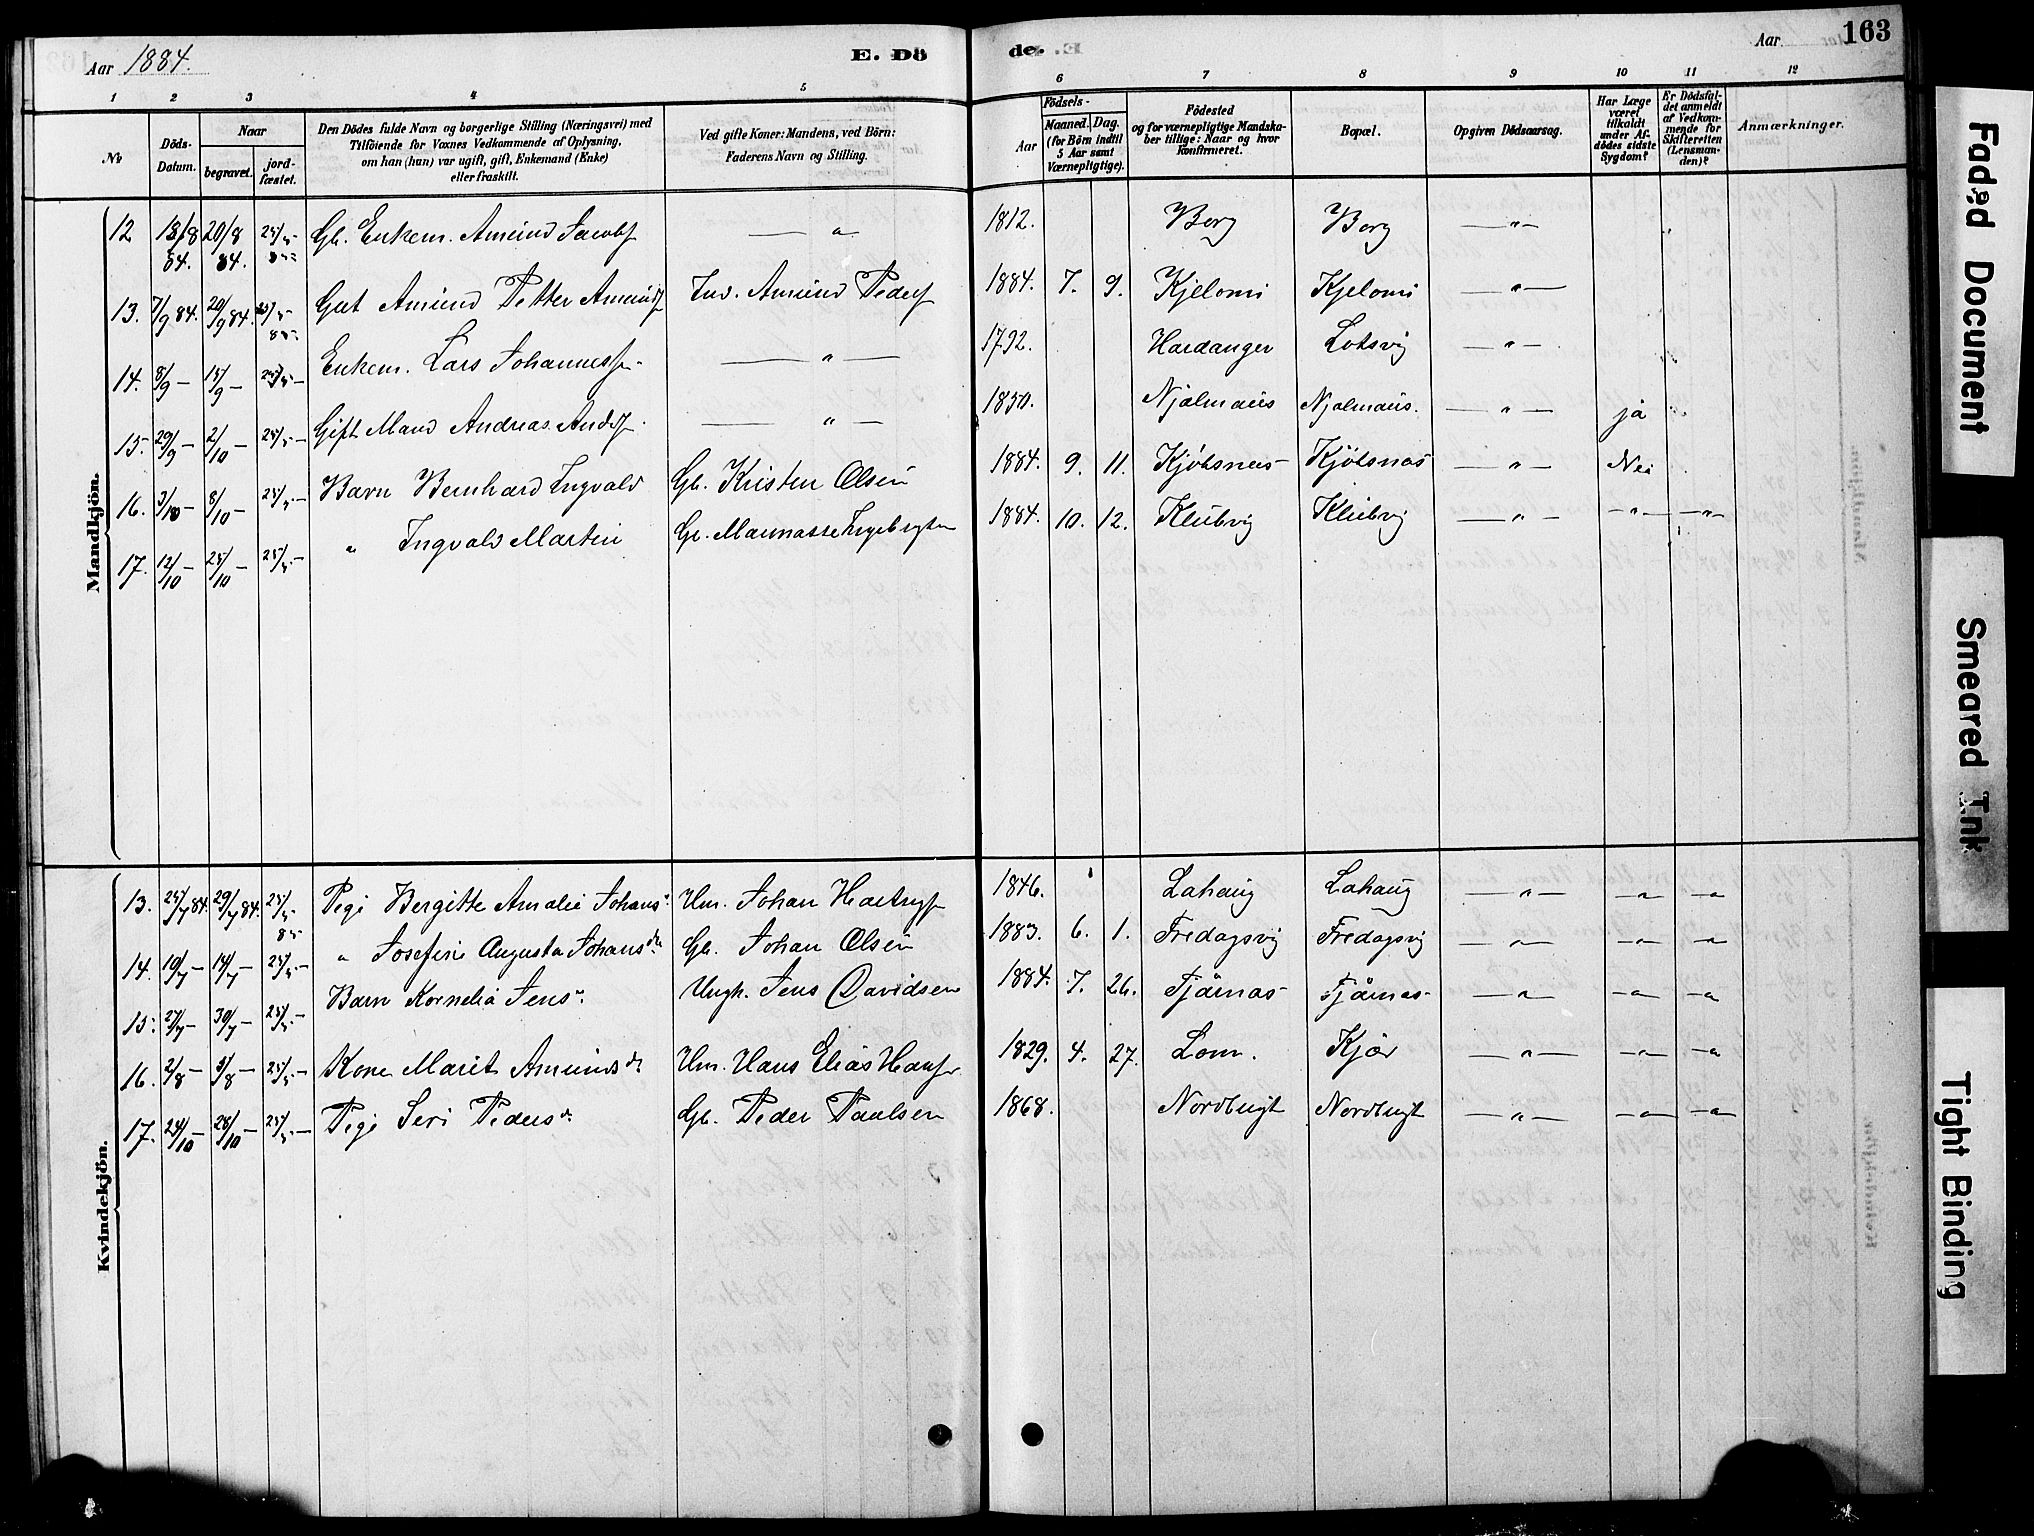 Aar 1884. E. Dö de. Aar 163
1 2 3 4 5 6 7 8 9 10 11 12
No Döds-Datum. Naar begravet. jord-fæstet. Den Dödes fulde Navn og borgerlige Stilling (Næringsvei) med Tilföiende for Voxnes Vedkommende af Oplysning, om han (hun) var ugift, gift, Enkemand (Enke) eller fraskilt. Ved gifte Koner: Mandens, ved Börn: Faderens Navn og Stilling. Födsels- Aar Maaned. Dag. (for Börn indtil 5 Aar samt Værnepligtige). Födested og for værnepligtige Mandska-ber tillige: Naar og hvor konfirmeret. Bopæl. Opgiven Dödsaarsag. Har Læge været tilkaldt under Af-dödes sidste Sygdom? Er Dödsfal-det anmeldt af Vedkom-mende for Skifteretten (Lensman-den)? Anmærkninger.
Mandkjön.
12 20/8 84. Gb. Enkem. Amund Jacobs — " 1812. Borg Borg — " —
13. 7/9 84. 20/9 84. Gut Amund Petter Amunds Inv. Amund Peders 1884. 7. 9. Kjelomi Kjelomi — " —
14. 8/9 — 15/9 — Enkem. Lars Johanness — " — 1792. Hardanger Lotsvig — " —
15. 29/9 — 2/10 — Gift Mand Andreas Ands. — " — 1850. Njalmaus Njalmaus. — " — ja
16. 3/10 — 8/10 — Barn Bernhard Ingvald Gb. Kristen Olsen 1884. 9. 11. Kjöbsnas Kjöbsnas — " — Nei
17. 12/10 — 25/10 — " Ingvald Martin Gb. Mannasse Ingebrigtsen 1884. 10. 12. Klubvig Klubvig — " — — " — — " —
Kvindekjön.
13. 25/7 84. 29/7 84. Pige Bergitte Amalie Johans. Um. Johan Hartvigs 1846. Lahaug Lahaug — " — — " — — "
14. 10/7 — 14/7 — " Josefine Augusta Johansdr. Gb. Johan Olsen 1883. 6. 1. Fredagsvig Fredagsvig — " — — " — — "
15. 27/7 — 30/7 — Barn Kornelia Jens. Ungk. Jens Davidsen 1884. 7. 26. Tjärnas Tjärnas — " — — " — — "
16. 2/8 — 3/8 — Kone Marit Amundsdr. Um. Hans Elias Hans 1829. 4. 27. Lom. Kjör — " — — " — — "
17. 24/10 — 28/10 — Pige Seri Pedersdr. Gb. Peder Paulsen 1868. Nordbugt Nordbugt — " — — " — — "
Faded Document
Smeared Ink
Tight Binding